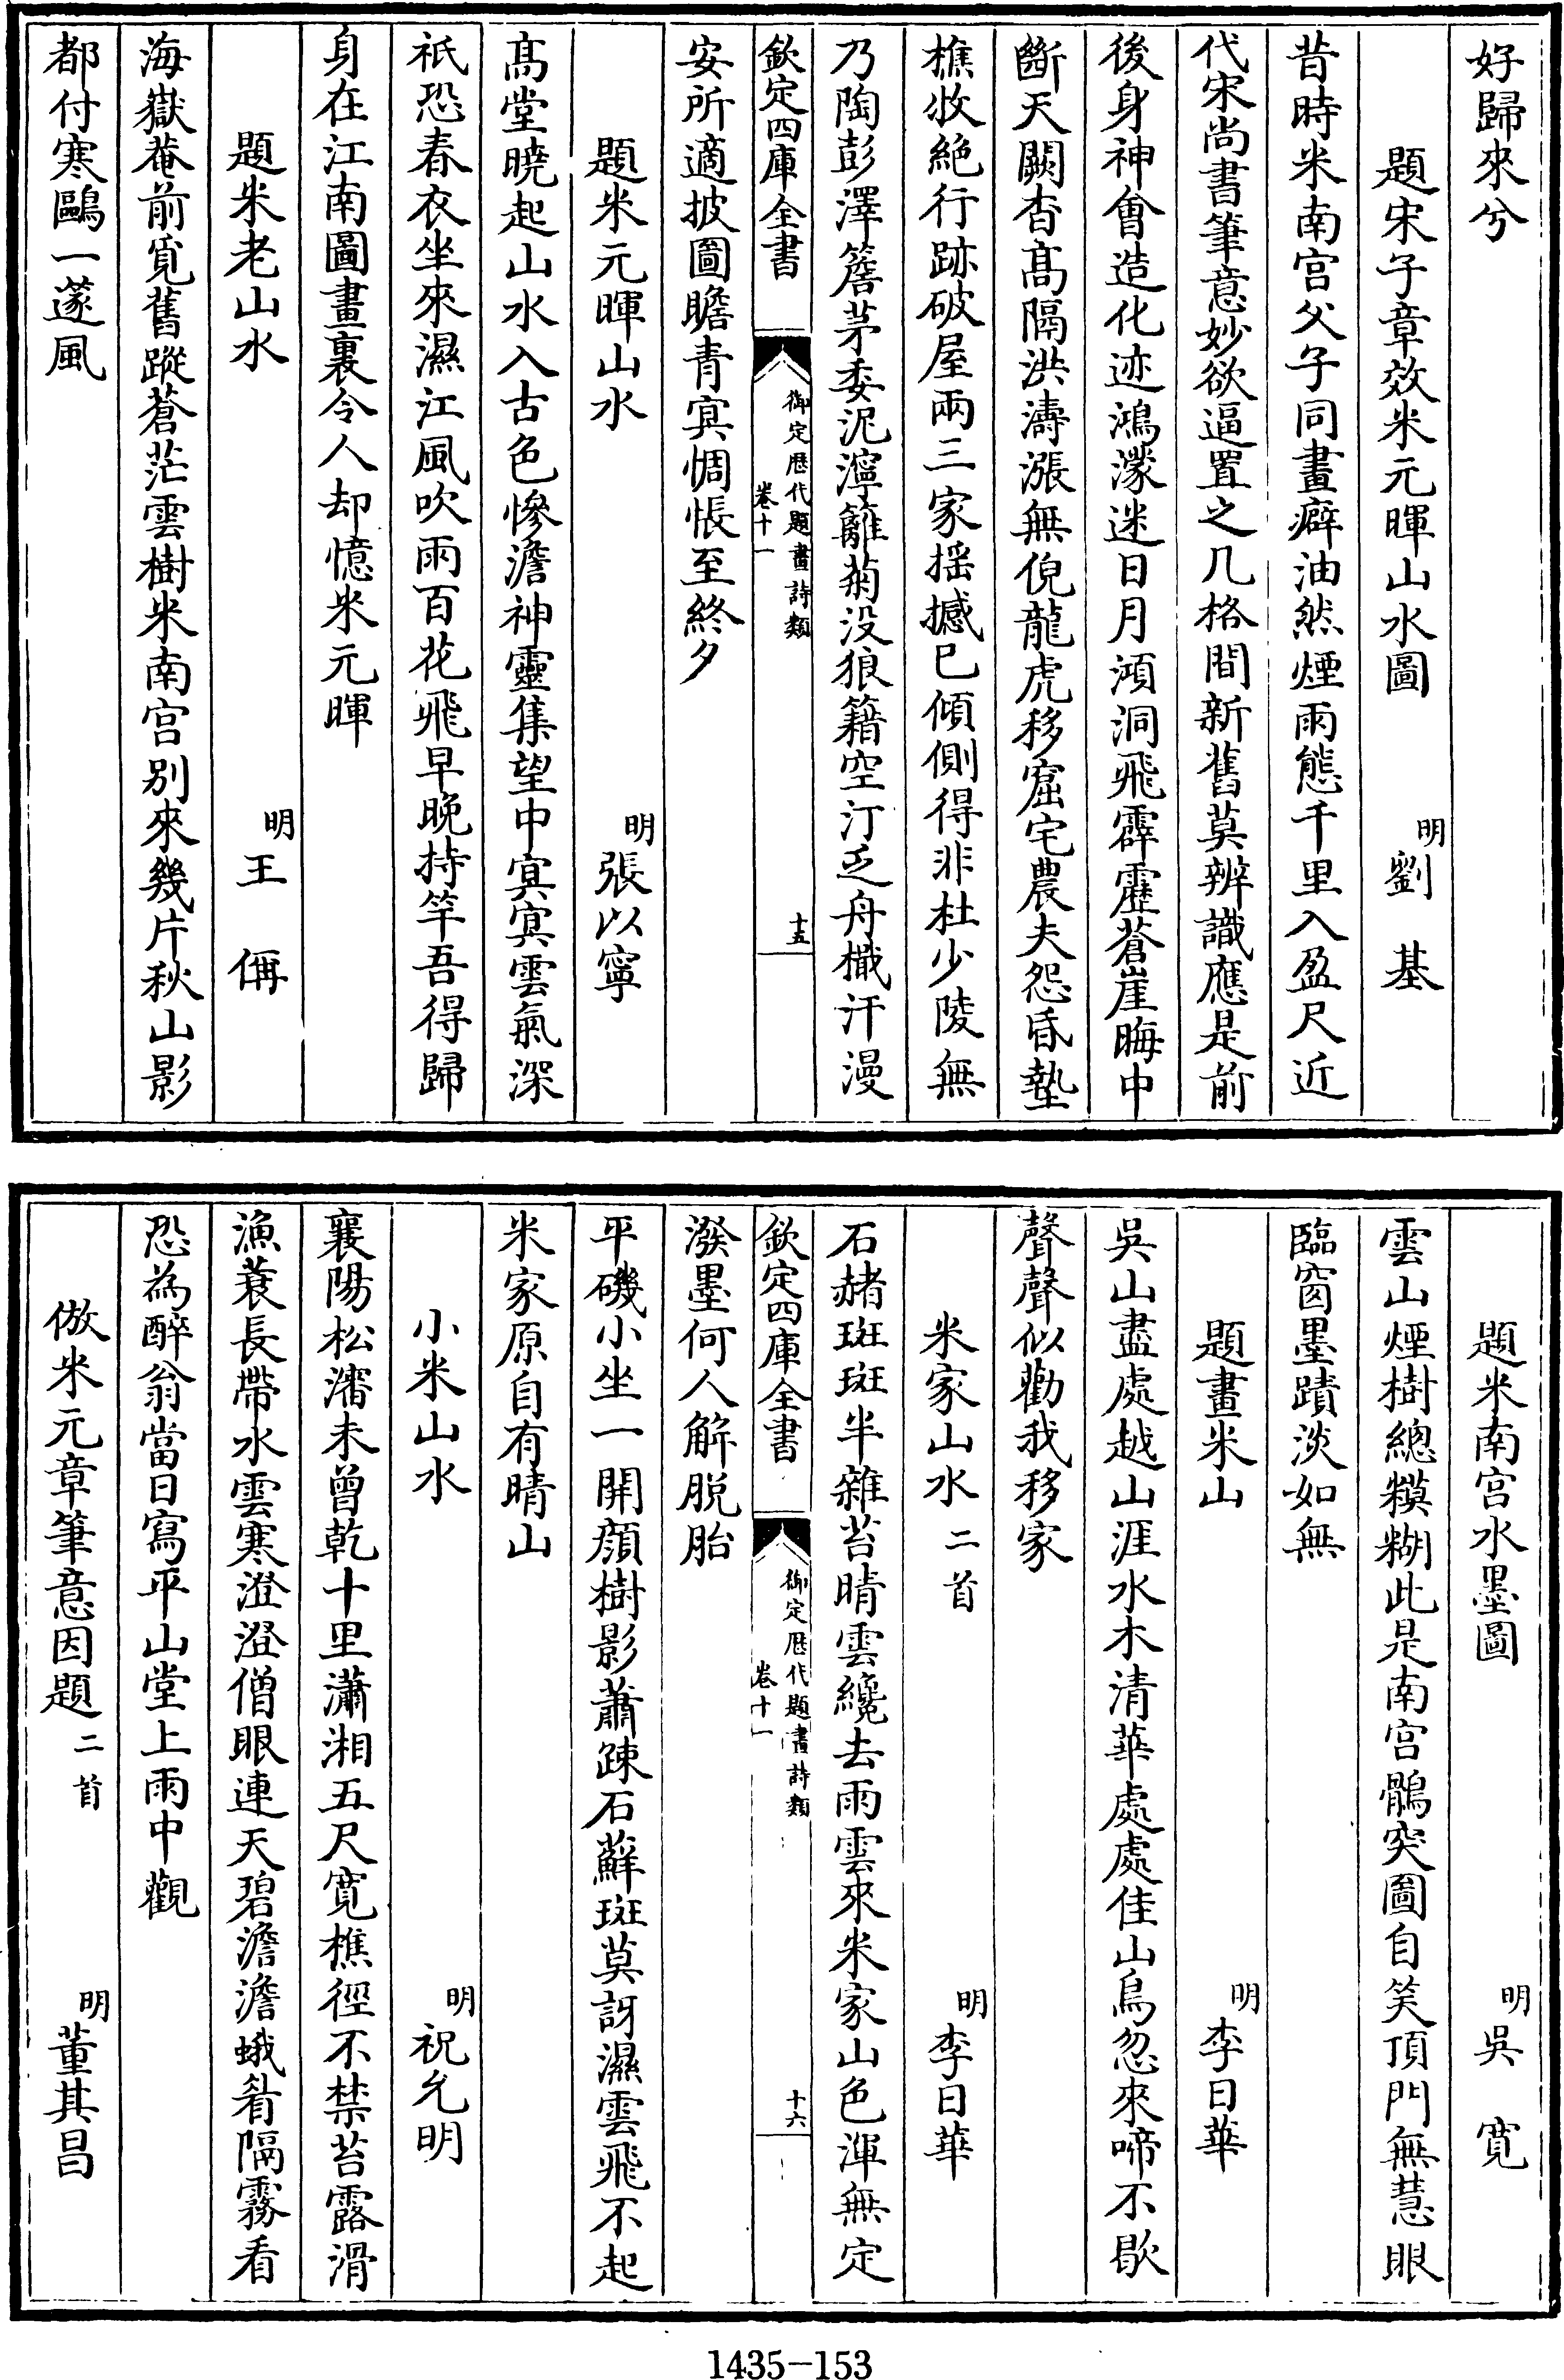 好歸來兮
題宋子章效米元暉山水圖　明劉基
昔時米南宫父子同畫癖油然煙雨態千里入盈尺近
代宋尚書筆意妙欲逼置之几格間新舊莫辨識應是前
後身神會造化迹鴻濛迷日月澒洞飛霹靂蒼崖晦中
斷天闕杳髙隔洪濤漲無倪龍虎移窟宅農夫怨昏墊
樵牧絶行跡破屋兩三家揺撼已傾側得非杜少陵無
乃陶彭澤簷茅委泥濘籬菊没狼籍空汀乏舟檝汗漫
欽定四庫全書　御定歴代題畫詩類　卷十一　十五
安所適披圖瞻青㝠惆悵至終夕
題米元暉山水　明張以寧
髙堂曉起山水入古色慘澹神靈集望中㝠㝠雲氣深
祇恐春衣坐來濕江風吹雨百花飛早晚持竿吾得歸
身在江南圖畫裏令人却憶米元暉
題米老山水　明王偁
海嶽菴前覓舊蹤蒼茫雲樹米南宫别來幾片秋山影
都付寒鷗一篴風
題米南宫水墨圖　明吳寛
雲山煙樹總糢糊此是南宫鶻突圖自笑頂門無慧眼
臨窗墨蹟淡如無
題畫米山　明李日華
吳山盡處越山涯水木清華處處佳山鳥忽來啼不歇
聲聲似勸我移家
米家山水二首　明李日華
石赭斑斑半雜苔晴雲纔去雨雲來米家山色渾無定
潑墨何人解脱胎
欽定四庫全書　御定歴代題畫詩類　卷十一　十六
平磯小坐一開顔樹影蕭疎石蘚斑莫訝濕雲飛不起
米家原自有晴山
小米山水　明祝允明
襄陽松瀋未曾乾十里瀟湘五尺寛樵徑不禁苔露滑
漁蓑長帶水雲寒澄澄僧眼連天碧澹澹蛾眉隔霧看
恐為醉翁當日寫平山堂上雨中觀
倣米元章筆意因題二首　明董其昌
1435-153